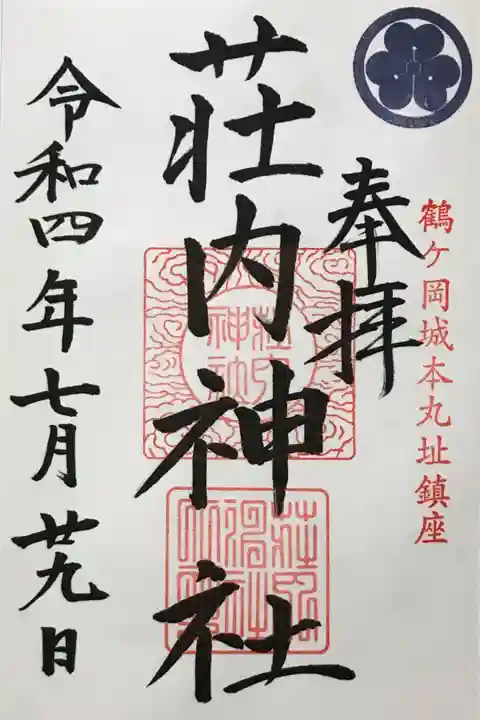 鶴ヶ岡城本丸址鎮座
奉拝
荘内神社
令和四年七月廿九日
荘内
神社